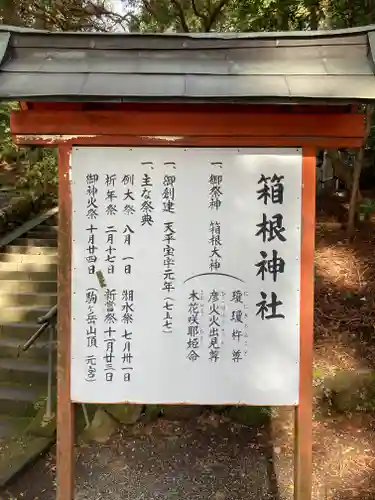 箱根神社
一、御祭神　箱根大神
瓊瓊杵尊
彦火火出見尊
木花咲耶姫命
一、御創建　天平宝字元年（七五七）
一、主な祭典
例大祭　八月一日　湖水祭　七月卅一日
祈年祭　二月十七日　新嘗祭　十一月廿三日
御神火祭　十月廿四日（駒ヶ岳山頂　元宮）